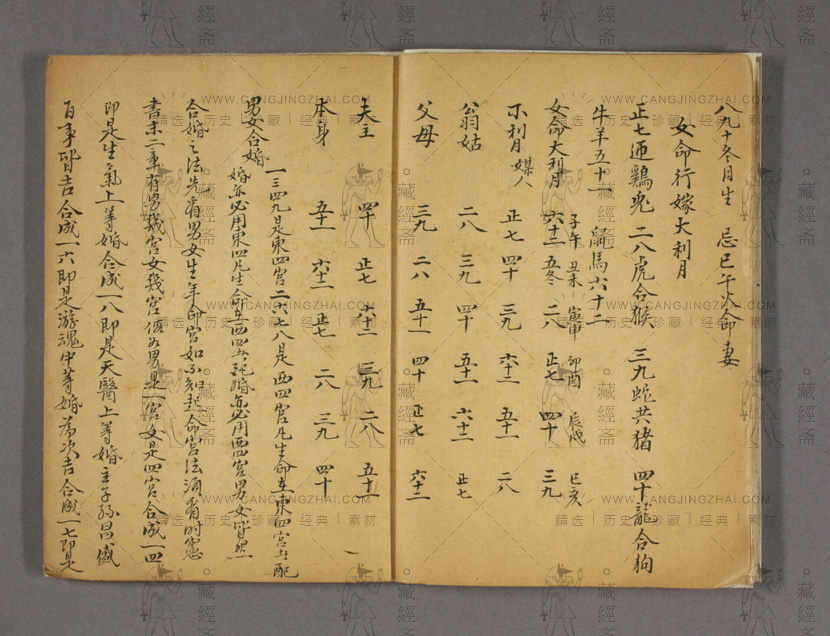 八九十冬月生　忌巳午火命妻
女命行嫁大利月
正七迎鷄兎　二八虎合猴　三九蛇共猪　四十龍合狗
牛羊五十一　鼠馬六十二
子午　丑未　寅申　卯酉　辰戌　巳亥
女命大利月　六十二　五冬　二八　正七　四十　三九
不利月媒人　正七　四十　三九　六十二　五十一　二八
翁姑　二八　三九　四十　五十一　六十二　正七
父母　三九　二八　五十一　四十　正七　六十二
夫主　四十　正七　六十二　三九　二八　五十一
本身　五十一　六十二　正七　二八　三九　四十
一三四九是東四宮二六七八是西四宮凡生命在東四宮者配
男女合婚　婚亦必用東四凡生命在西四者配婚亦必用西四宮男女皆然
合婚之法先看男女生年命宮如不知起命宮法須看時憲
書末二章有男幾宮女幾宮假如男是一宮女是四宮合成一四
即是生氣上等婚合成一八即是天醫上等婚主子孫昌盛
百事皆吉合成一六即是游魂中等婚為次吉合成一七即是
WWW.CANGJINGZHAI.COM
精选｜历史｜珍藏｜经典｜素材
藏經斋